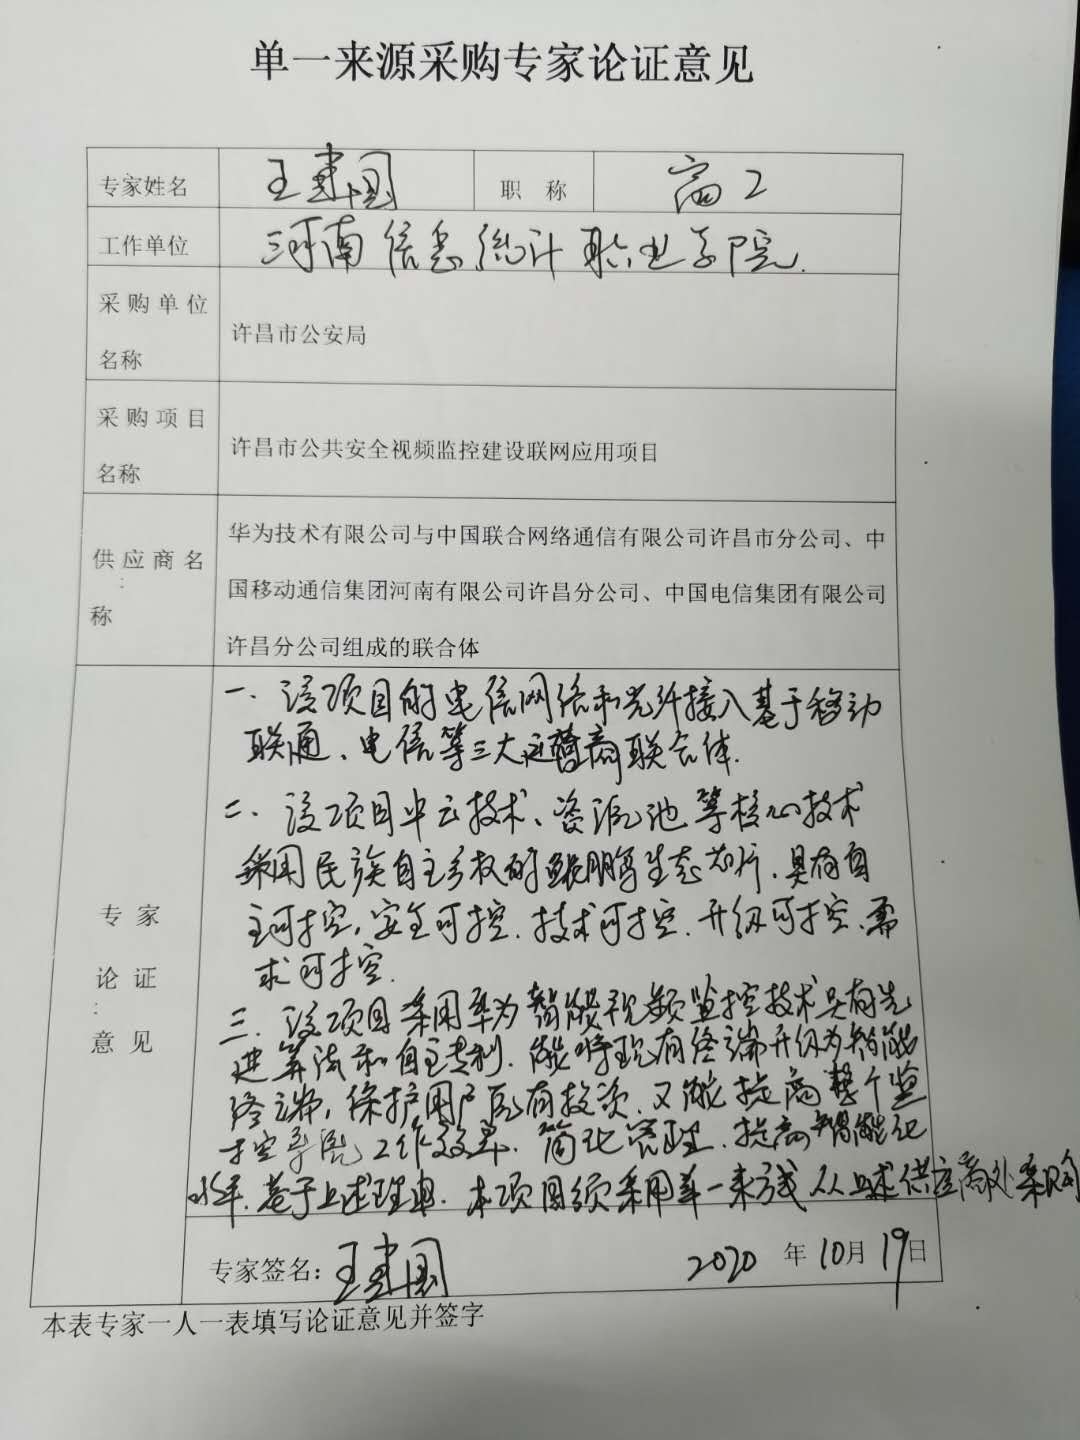 单一来源采购专家论证意见
专家姓名 王建国 职 称 高工
工作单位 河南信息统计职业学院.
采购单位
名称
许昌市公安局
采购项目
名称
许昌市公共安全视频监控建设联网应用项目
供应商名
称
华为技术有限公司与中国联合网络通信有限公司许昌市分公司、中
国移动通信集团河南有限公司许昌分公司、中国电信集团有限公司
许昌分公司组成的联合体
专 家
论 证
意 见
一、该项目的电信网络和光纤接入基于移动
联通、电信等三大运营商联合体.
二、该项目中云技术、资源池等核心技术
采用民族自主产权的鲲鹏生态芯片、具有自
主可控,安全可控、技术可控、升级可控、需
求可控.
三、该项目采用华为智能视频监控技术具有先
进算法和自主专利、能将现有终端升级为智能
终端,保护用户原有投资、又能提高整个监
控系统工作效率、简化管理、提高智能化
水平.基于上述理由、本项目须采用单一来源从上述供应商处采购
专家签名: 王建国 2020 年 10月 19日
本表专家一人一表填写论证意见并签字